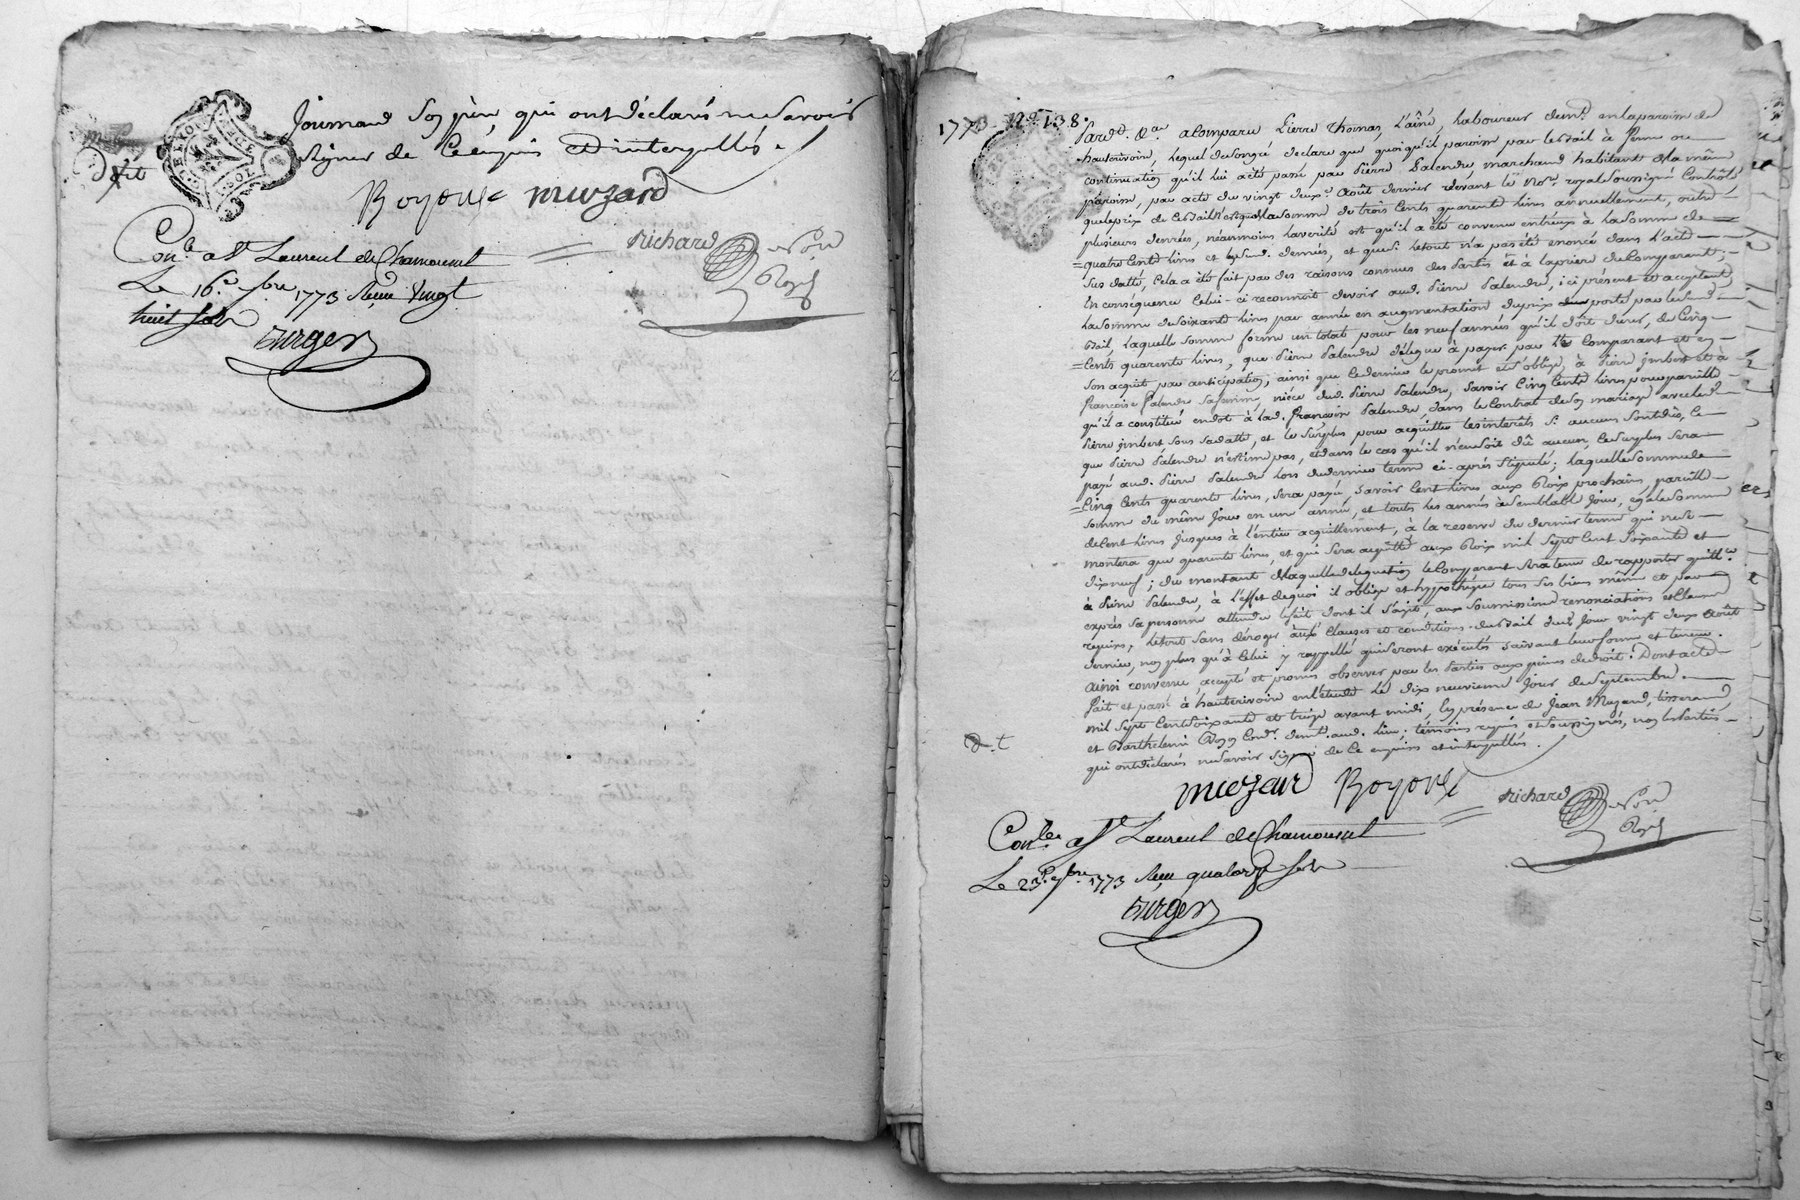 Journaud son père, qui ont déclarés ne savoir
signer de ce enquis et interpellés.
Royon muzard
richard
Conlé à St Laurent de Chamousset
Le 16e 7bre 1773 Reçu vingt
huit sols
Surgery
1773 No 138.
Pardt. &a. a Comparu Pierre Thomas, l'aîné, laboureur demt. en la paroisse de
hauterivoire, lequel de son gré déclare que quoiqu'il paroisse par le bail à ferme ou
continuation qu'il lui a été passé par Pierre Palendre, marchand habitant de la même
paroisse, par acte du vingt deuxe. Août dernier devant le Nore. royal soussigné Contrôlé
que le prix de ce bail n'est que la somme de trois Cents quarente livres annuellement, outre
plusieurs denrées, néanmoins la vérité est qu'il a été convenu entr'eux à la somme de
quatre Cents livres et lesd. denrées, et que si le tout n'a pas été énoncé dans l'acte
sus datté, Cela a été fait par des raisons connues des Parties et à la prière du Comparant;
En conséquence Celui-ci reconnoit devoir aud. Pierre Palendre, ici présent et acceptant
la somme de soixante livres par année en augmentation du prix porté par led.
bail, laquelle somme forme un total pour les neuf années qu'il doit durer, de Cinq
Cents quarente livres, que Pierre Palendre délègue à payer par le Comparant et en
son acquit par anticipation, ainsi que ce dernier le promet et s'oblige, à Pierre imbert et à
françoise Palendre sa femme, nièce dud. Pierre Palendre, savoir Cinq Cents livres pour pareille
qu'il a constitué en dot à lad. françoise Palendre, dans le Contrat de son mariage avec led.
Pierre imbert sous sa datte, et le surplus pour acquitter les interêts si aucuns sont dûs, ce
que Pierre Palendre n'estime pas, et dans le cas qu'il n'en soit dû aucun, le surplus sera
payé aud. Pierre Palendre lors du dernier terme ci-après stipulé; laquelle somme de
Cinq Cents quarente livres, sera payée, savoir Cent livres aux Rois prochains, pareille
somme du même jour en un année, et touts les années à semblable jour, égale somme
de Cent livres jusques à l'entier acquittement, à la reserve du dernier terme qui ne se
montera que quarente livres, et qui sera acquitté aux Rois mil sept Cent soixante et
dix neuf; du montant de laquelle délégation le Comparant sera tenu de rapporter quittce.
à Pierre Palendre, à l'effet de quoi il oblige et hypothéque tous ses biens même et par
exprès sa personne attendu le fait dont il s'agit aux soumissions renonciations et clauses
requises, le tout sans déroger aux Clauses et conditions du bail dud. jour vingt deux Août
dernier, non plus qu'à Celui y rappellé qui seront exécutés suivant leur forme et teneur.
Ainsi convenu, accepté et promis observer par les Parties aux peines de droit. Dont acte
fait et passé à hauterivoire en l'étude Le dix neuvieme jour de septembre
mil sept Cent soixante et treize avant midi, En présence de Jean Muzard, tisserand,
et Barthelemi Royon Cordr. demts. aud. lieu; témoins requis et soussignés, non les Parties
qui ont déclarés ne savoir signer de ce enquis et interpellés.
muzard Royon
richard
Conlé à St Laurent de Chamousset
Le 23e 7bre 1773 Reçu quatorze sols
Surgery